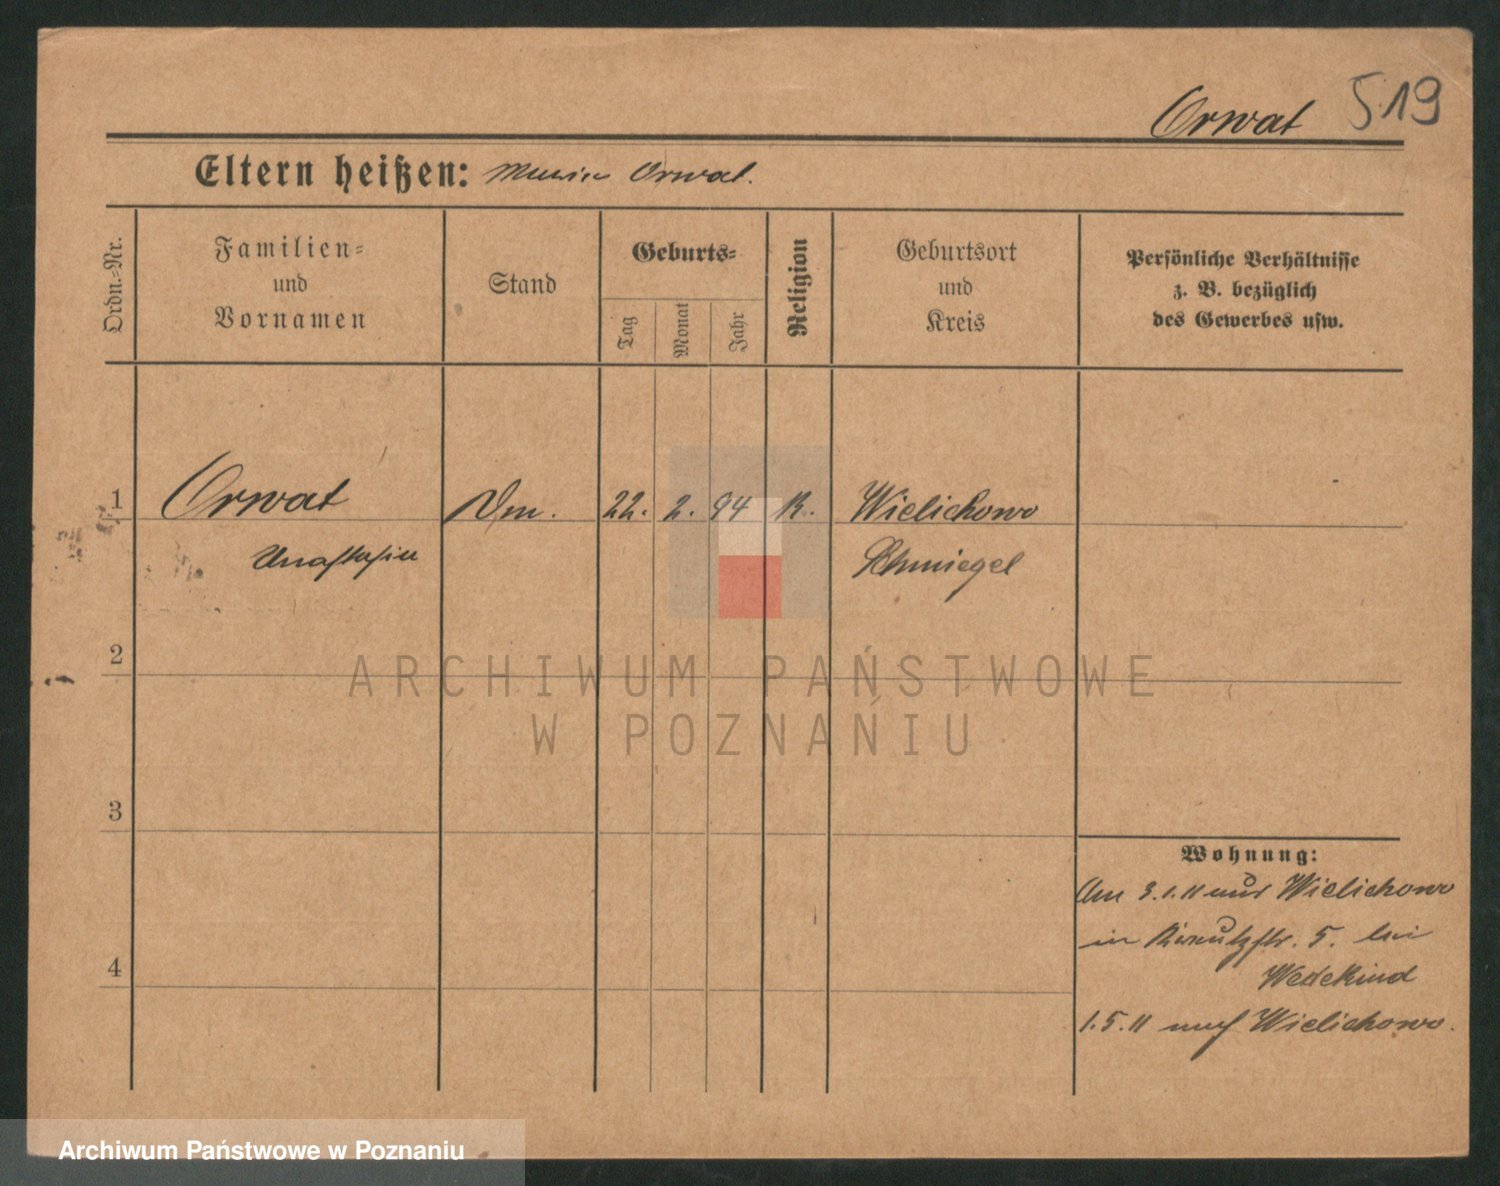 Orwat 519
Eltern heißen: Maria Orwat.
Ordn.=Nr.
Familien=
und
Vornamen
Stand
Geburts=
Tag
Monat
Jahr
Religion
Geburtsort
und
Kreis
Persönliche Verhältnisse
z. B. bezüglich
des Gewerbes usw.
1 Orwat Dm. 22. 2. 94 K. Wielichowo
Anastasia Schmiegel
2
ARCHIWUM PAŃSTWOWE
W POZNANIU
3
Wohnung:
Am 3.1.11 aus Wielichowo
in Kreutzstr. 5. bei
4
Wedekind
1.5.11 nach Wielichowo.
Archiwum Państwowe w Poznaniu